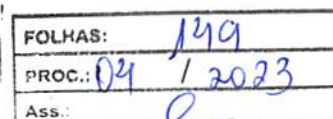 FOLHAS: 149
PROC.: 04 / 2023
Ass.: